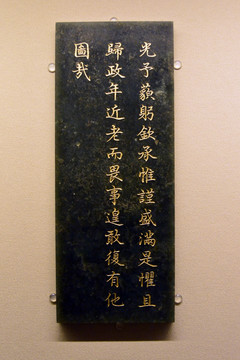 光予藐躬欽承惟謹盛滿是懼且
歸政年近老而畏事遑敢復有他
圖哉